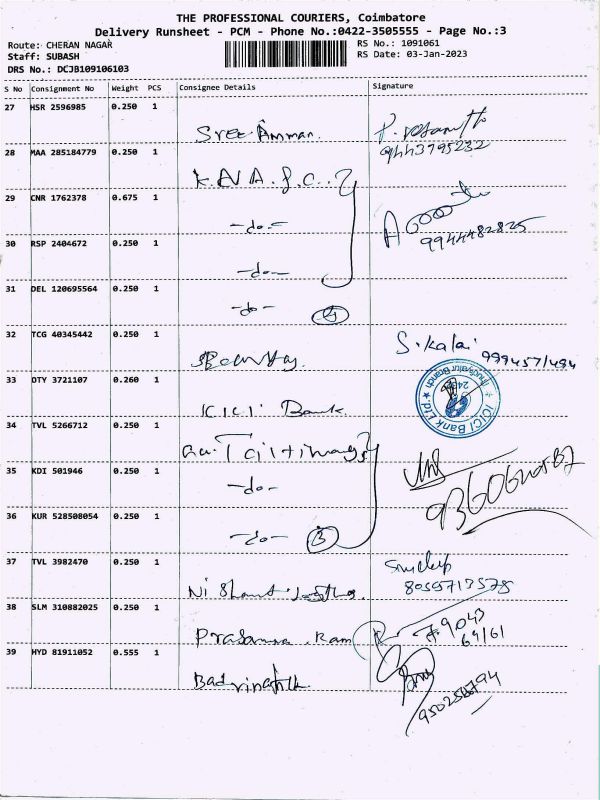 THE PROFESSIONAL COURIERS, Coimbatore
Delivery Runsheet - PCM - Phone No.:0422-3505555 - Page No.:3
Route: CHERAN NAGAR
Staff: SUBASH
DRS No.: DCJB109106103
RS No.: 1091061
RS Date: 03-Jan-2023
S No Consignment No Weight PCS Consignee Details Signature
27 HSR 2596985 0.250 1
Sree Amman.
9443795232
28 MAA 285184779 0.250 1
29 CNR 1762378 0.675 1
-do-
9944482825
30 RSP 2404672 0.250 1
-do-
31 DEL 120695564 0.250 1
-do- 4
32 TCG 40345442 0.250 1
S. Kalai
33 DTY 3721107 0.260 1
ICICI Bank
ICICI Bank Ltd
34 TVL 5266712 0.250 1
35 KDI 501946 0.250 1
-do-
36 KUR 528508054 0.250 1
-do- 3
37 TVL 3982470 0.250 1
38 SLM 310882025 0.250 1
Prasanna Ram
39 HYD 81911052 0.555 1
Badrinath.